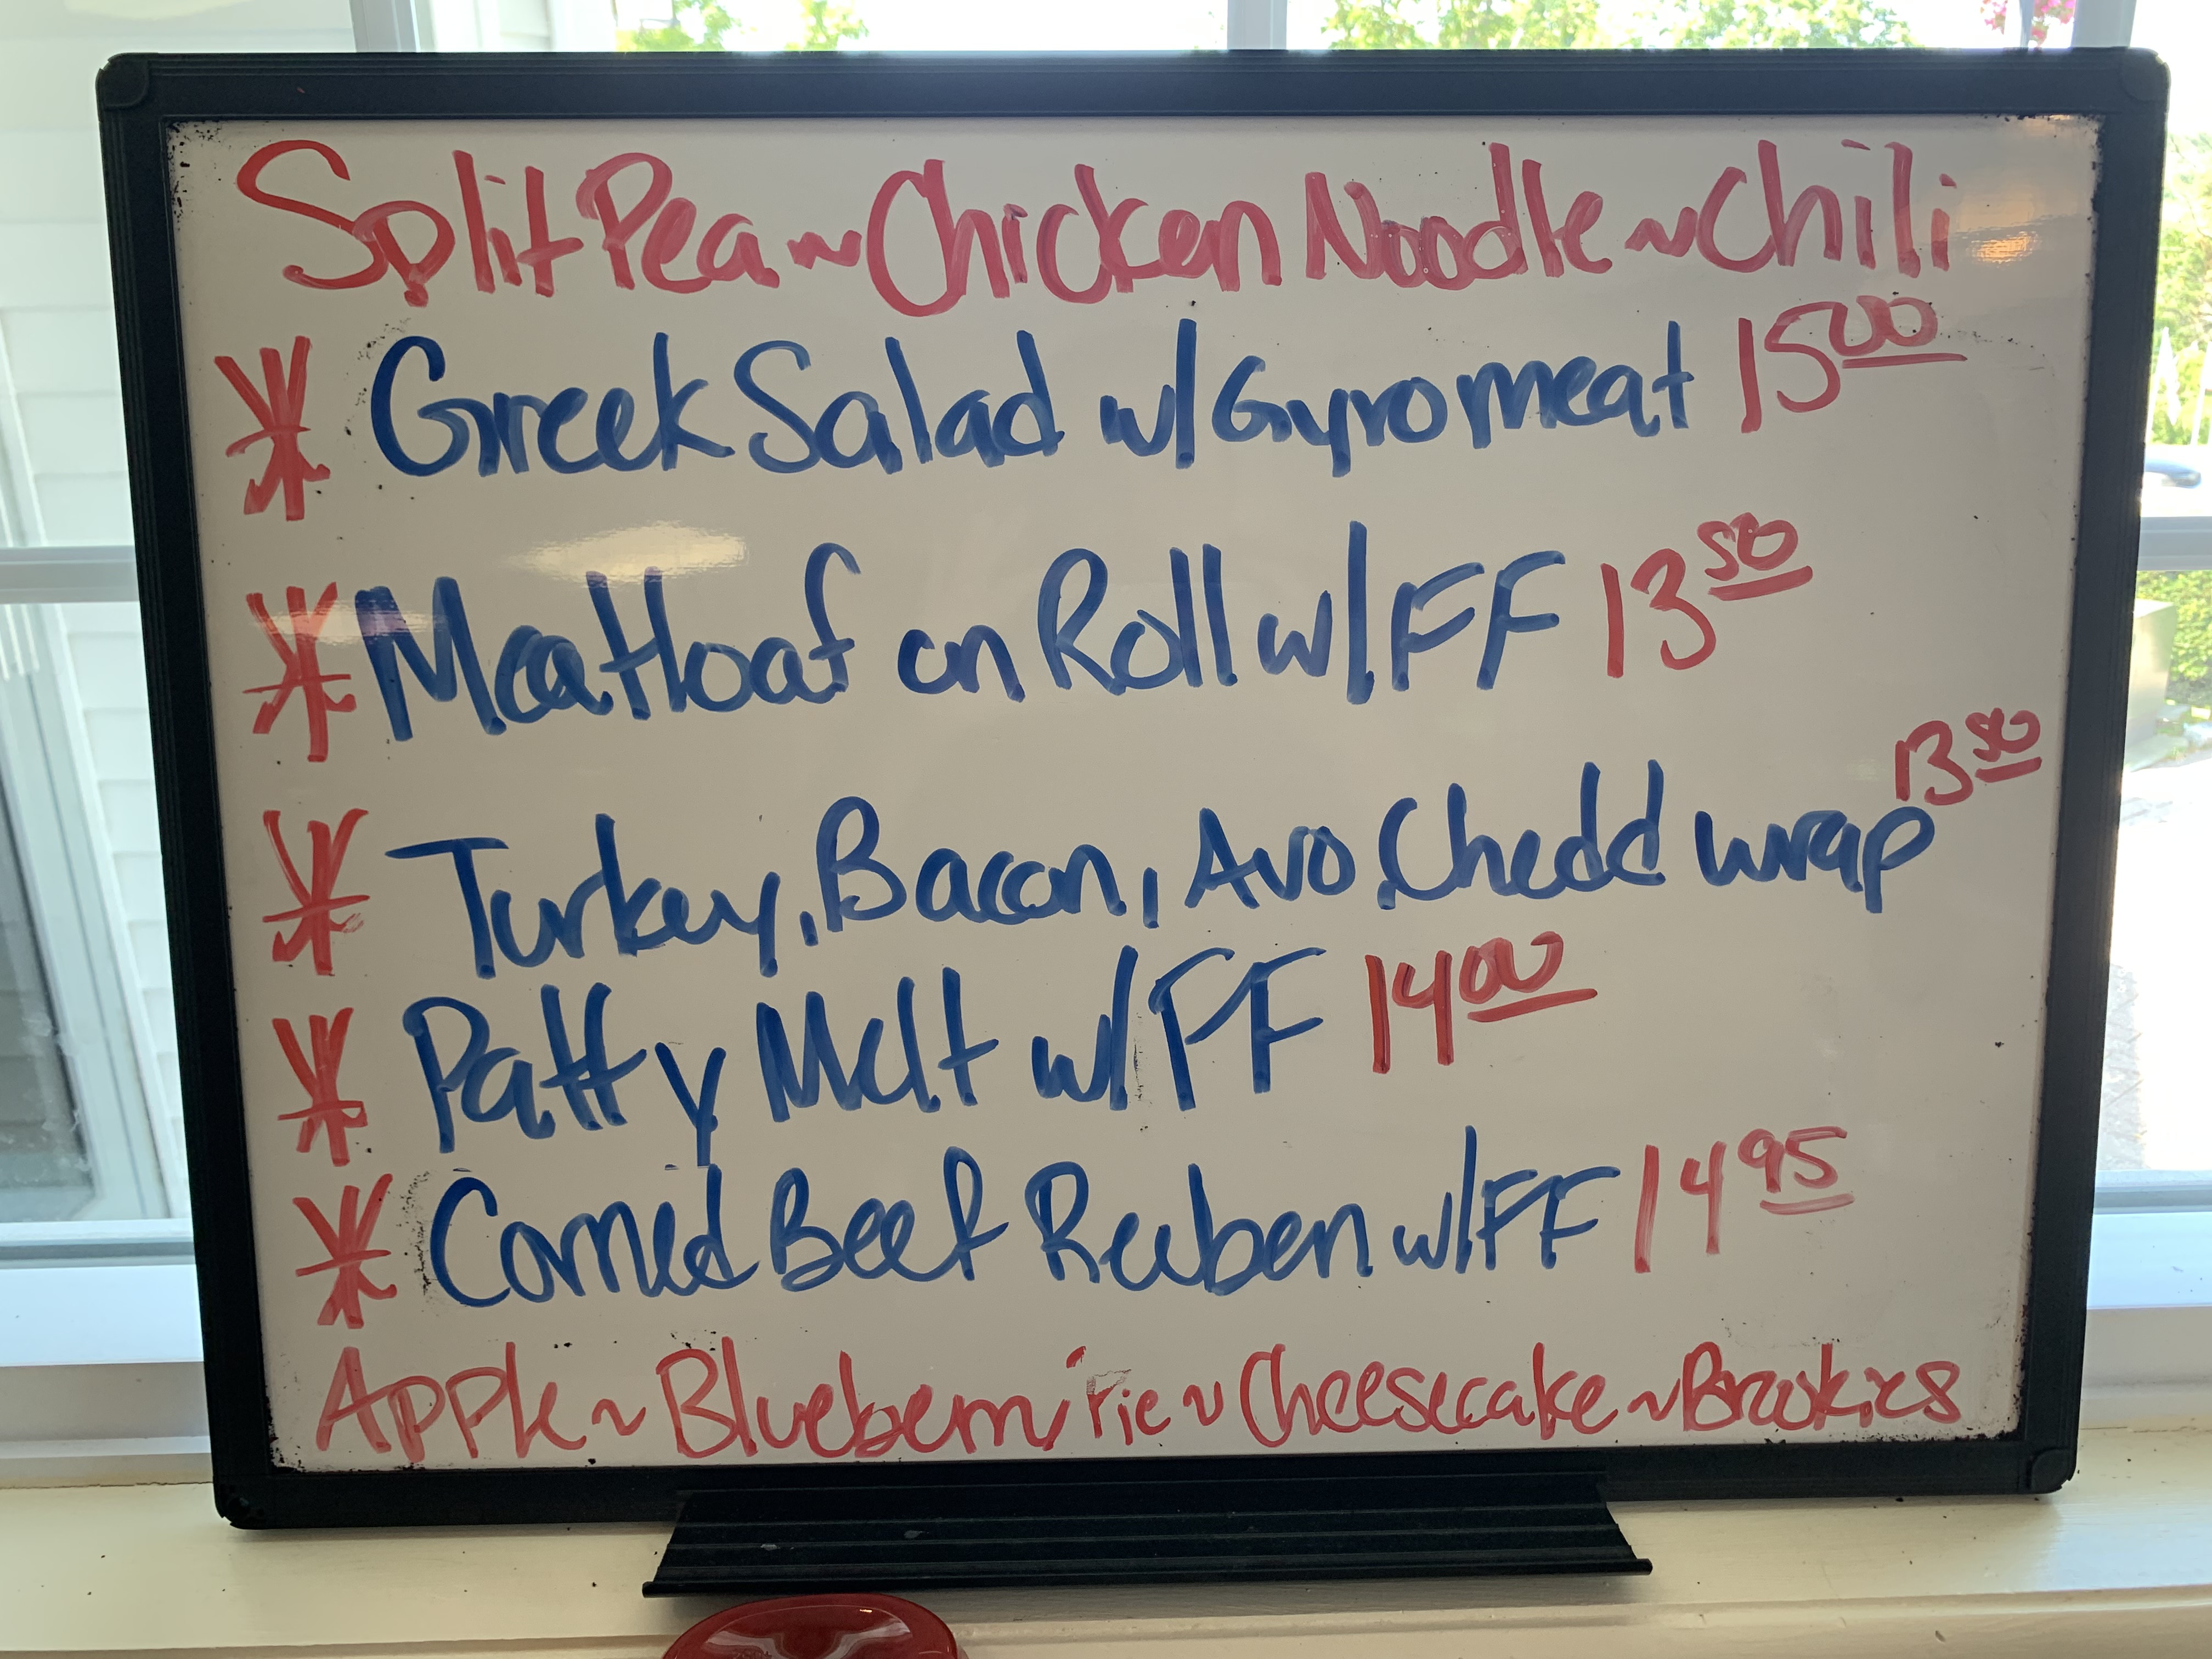 Split Pea ~ Chicken Noodle ~ Chili
* Greek Salad w/ Gyro meat 15.00
* Meatloaf on Roll w/ FF 13.50
* Turkey, Bacon, Avo, Chedd wrap 13.50
* Patty Melt w/ FF 14.00
* Corned Beef Reuben w/ FF 14.95
Apple ~ Blueberry Pie ~ Cheesecake ~ Brookies